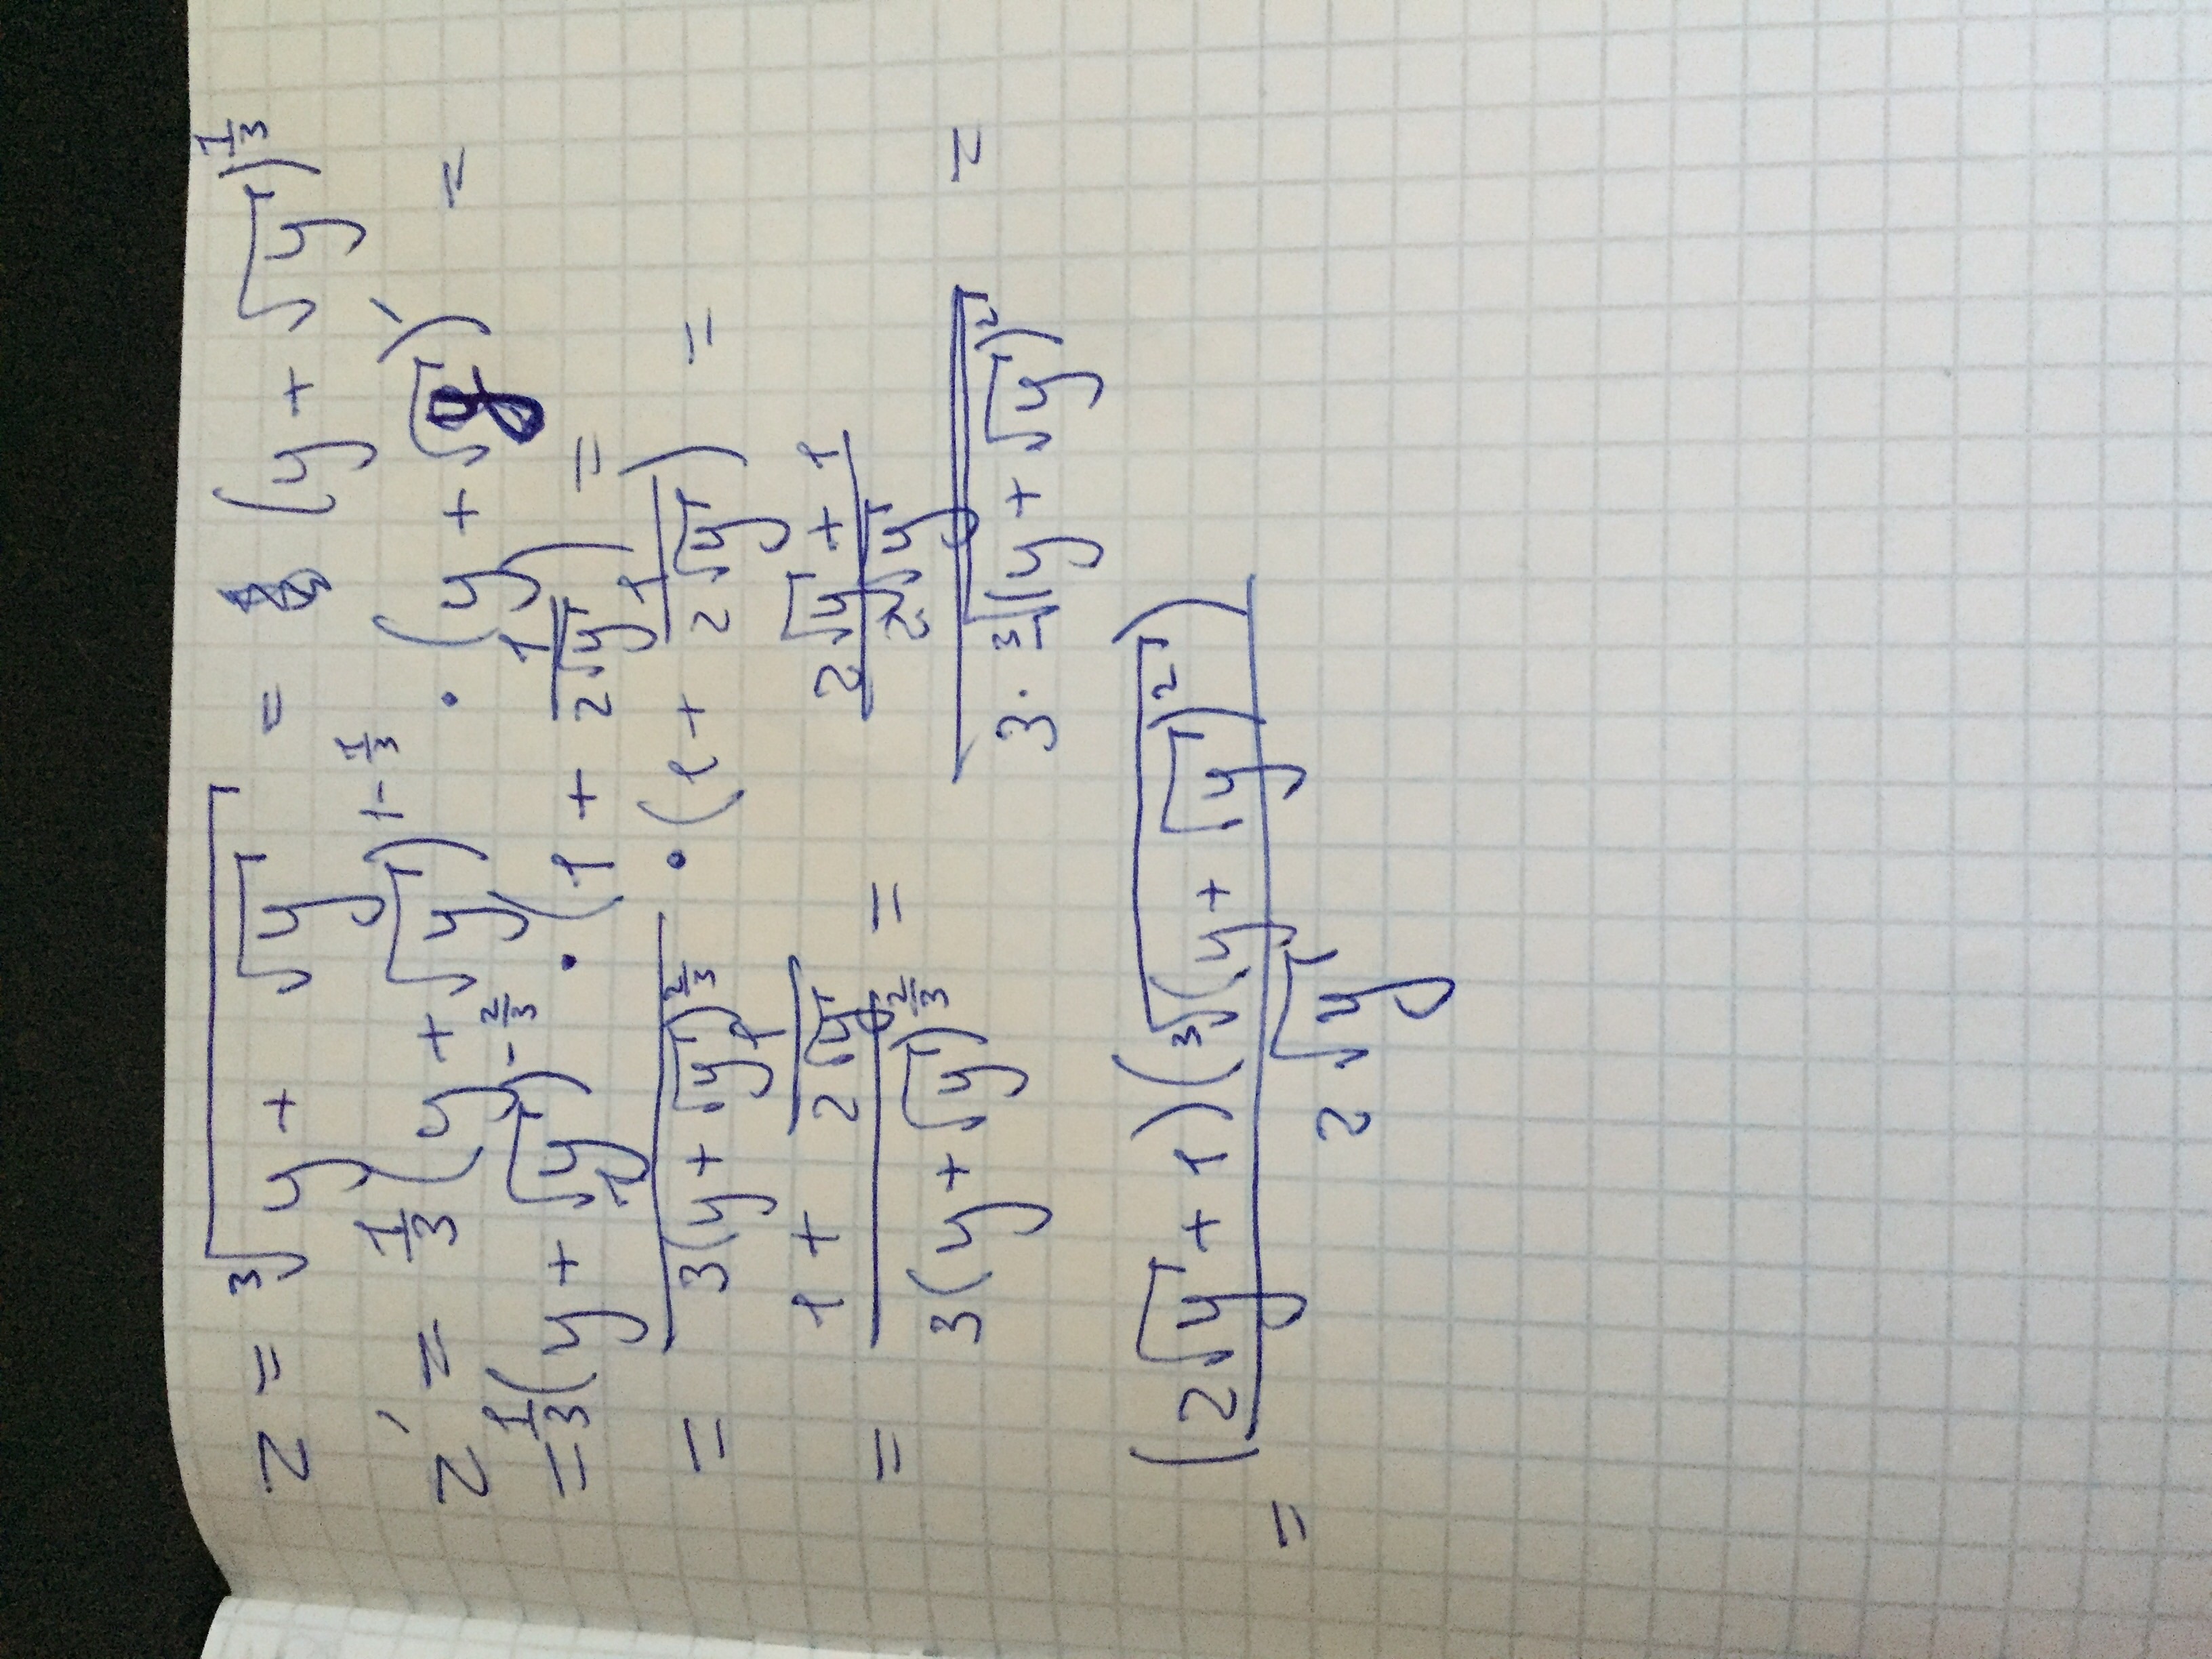 z = ∛(y + √y) = (y + √y)^(1/3)
z' = 1/3 (y + √y)^(1 - 1/3) · (y + √y)' =
= 1/3 (y + √y)^(-2/3) · (1 + 1/(2√y)) =
= 1/(3(y + √y)^(2/3)) · (1 + 1/(2√y)) =
= (1 + 1/(2√y))/(3(y + √y)^(2/3)) = ((2√y + 1)/(2√y))/(3 · ∛((y + √y)^2)) =
= ((2√y + 1)(∛((y + √y)^2)))/(2√y)